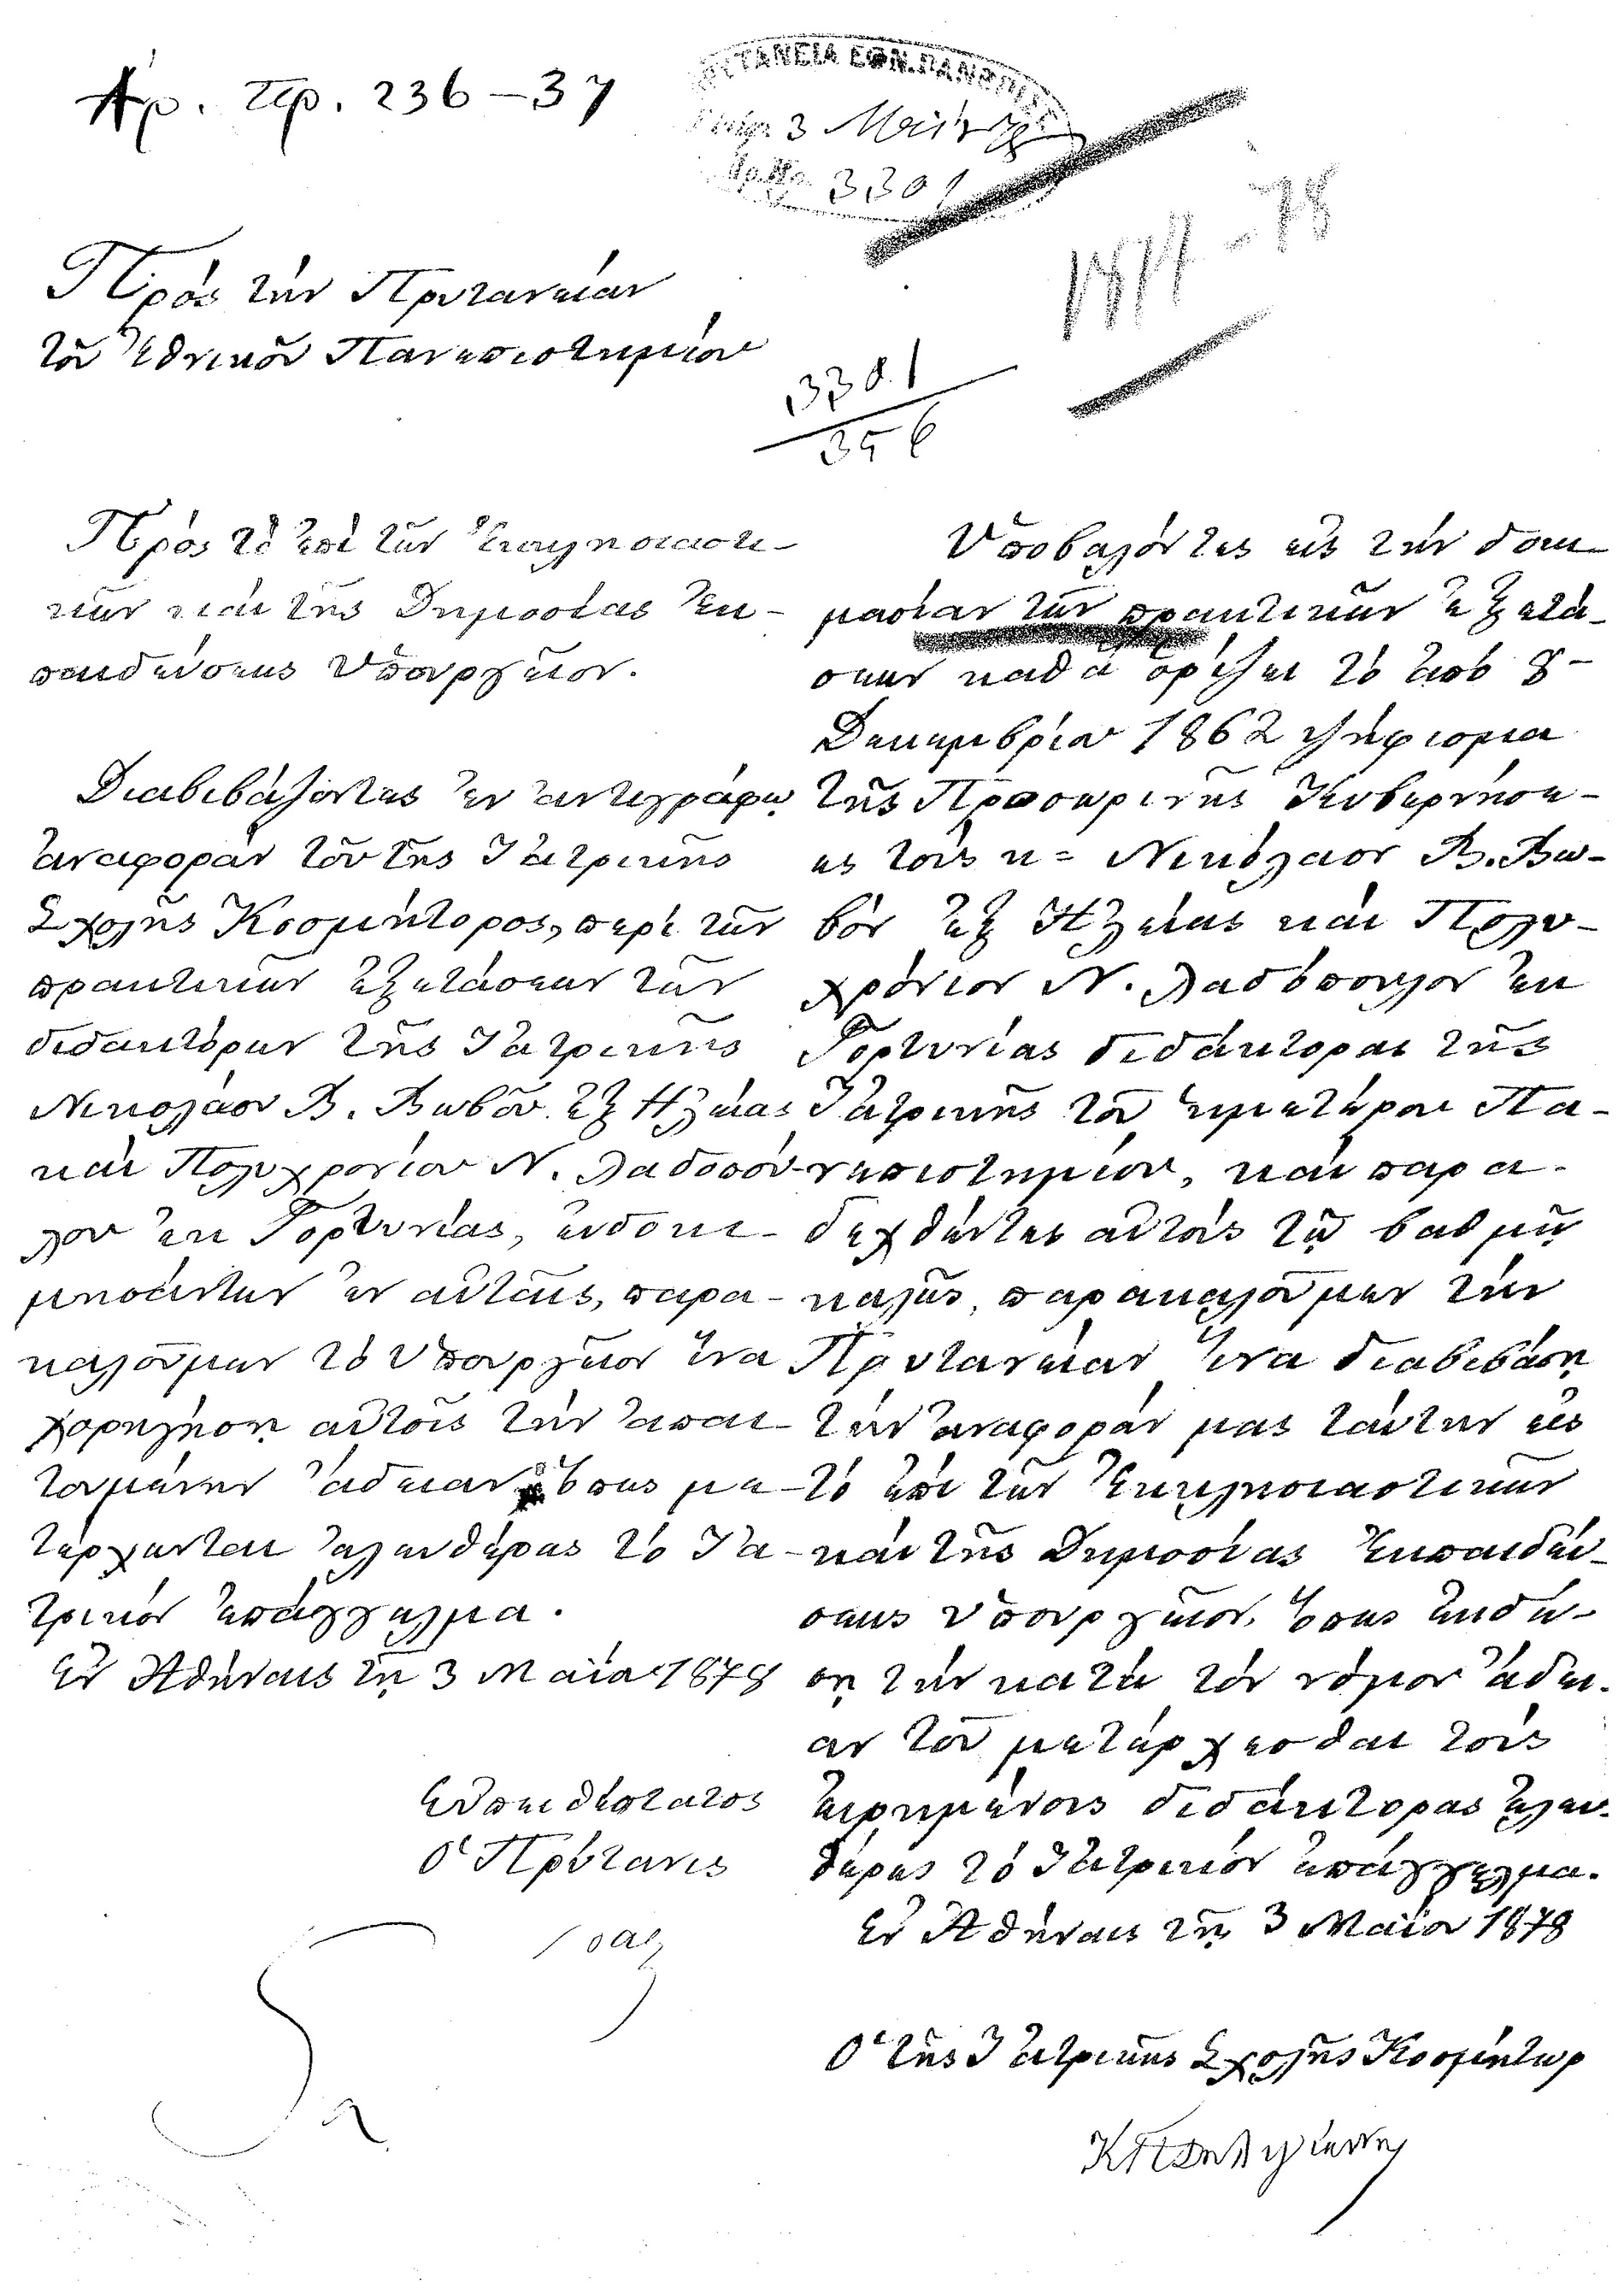 Ἀρ. πρ. 236-37
ΠΡΥΤΑΝΕΙΑ ΕΘΝ. ΠΑΝΕΠΙΣΤ
3 Μαΐου 78
3301
1877-78
Πρὸς τὴν Πρυτανείαν
τοῦ Ἐθνικοῦ Πανεπιστημίου
3301
356
Πρὸς τὸ ἐπὶ τῶν Ἐκκλησιαστι-
κῶν καὶ τῆς Δημοσίας Ἐκ-
παιδεύσεως Ὑπουργεῖον.
Διαβιβάζοντες ἐν ἀντιγράφῳ
ἀναφορὰν τοῦ τῆς Ἰατρικῆς
Σχολῆς Κοσμήτορος, περὶ τῶν
πρακτικῶν ἐξετάσεων τῶν
διδακτόρων τῆς Ἰατρικῆς
Νικολάου Β. Βωβοῦ ἐξ Ἠλείας
καὶ Πολυχρονίου Ν. Λαδοπού-
λου ἐκ Γορτυνίας, εὐδοκι-
μησάντων ἐν αὐταῖς, παρα-
καλοῦμεν τὸ Ὑπουργεῖον ἵνα
χορηγήσῃ αὐτοῖς τὴν ἀπαι-
τουμένην ἄδειαν ὅπως με-
τέρχωνται ἐλευθέρως τὸ Ἰα-
τρικὸν ἐπάγγελμα.
Ἐν Ἀθήναις τῇ 3 Μαΐου 1878
Εὐπειθέστατος
Ὁ Πρύτανις
Ὑποβαλόντες εἰς τὴν δοκι-
μασίαν τῶν πρακτικῶν ἐξετά-
σεων καθ' ἃ ὁρίζει τὸ ἀπὸ 8
Δεκεμβρίου 1862 ψήφισμα
τῆς Προσωρινῆς Κυβερνήσε-
ως τοὺς κ= Νικόλαον Β. Βω-
βὸν ἐξ Ἠλείας καὶ Πολυ-
χρόνιον Ν. Λαδόπουλον ἐκ
Γορτυνίας διδάκτορας τῆς
Ἰατρικῆς τοῦ ἡμετέρου Πα-
νεπιστημίου, καὶ παρα-
δεχθέντες αὐτοὺς τῷ βαθμῷ
καλῶς, παρακαλοῦμεν τὴν
Πρυτανείαν ἵνα διαβιβάσῃ
τὴν ἀναφοράν μας ταύτην εἰς
τὸ ἐπὶ τῶν Ἐκκλησιαστικῶν
καὶ τῆς Δημοσίας Ἐκπαιδεύ-
σεως Ὑπουργεῖον, ὅπως ἐκδώ-
σῃ τὴν κατὰ τὸν νόμον ἄδει-
αν τοῦ μετέρχεσθαι τοὺς
εἰρημένους διδάκτορας ἐλευ-
θέρως τὸ Ἰατρικὸν ἐπάγγελμα.
Ἐν Ἀθήναις τῇ 3 Μαΐου 1878
Ὁ τῆς Ἰατρικῆς Σχολῆς Κοσμήτωρ